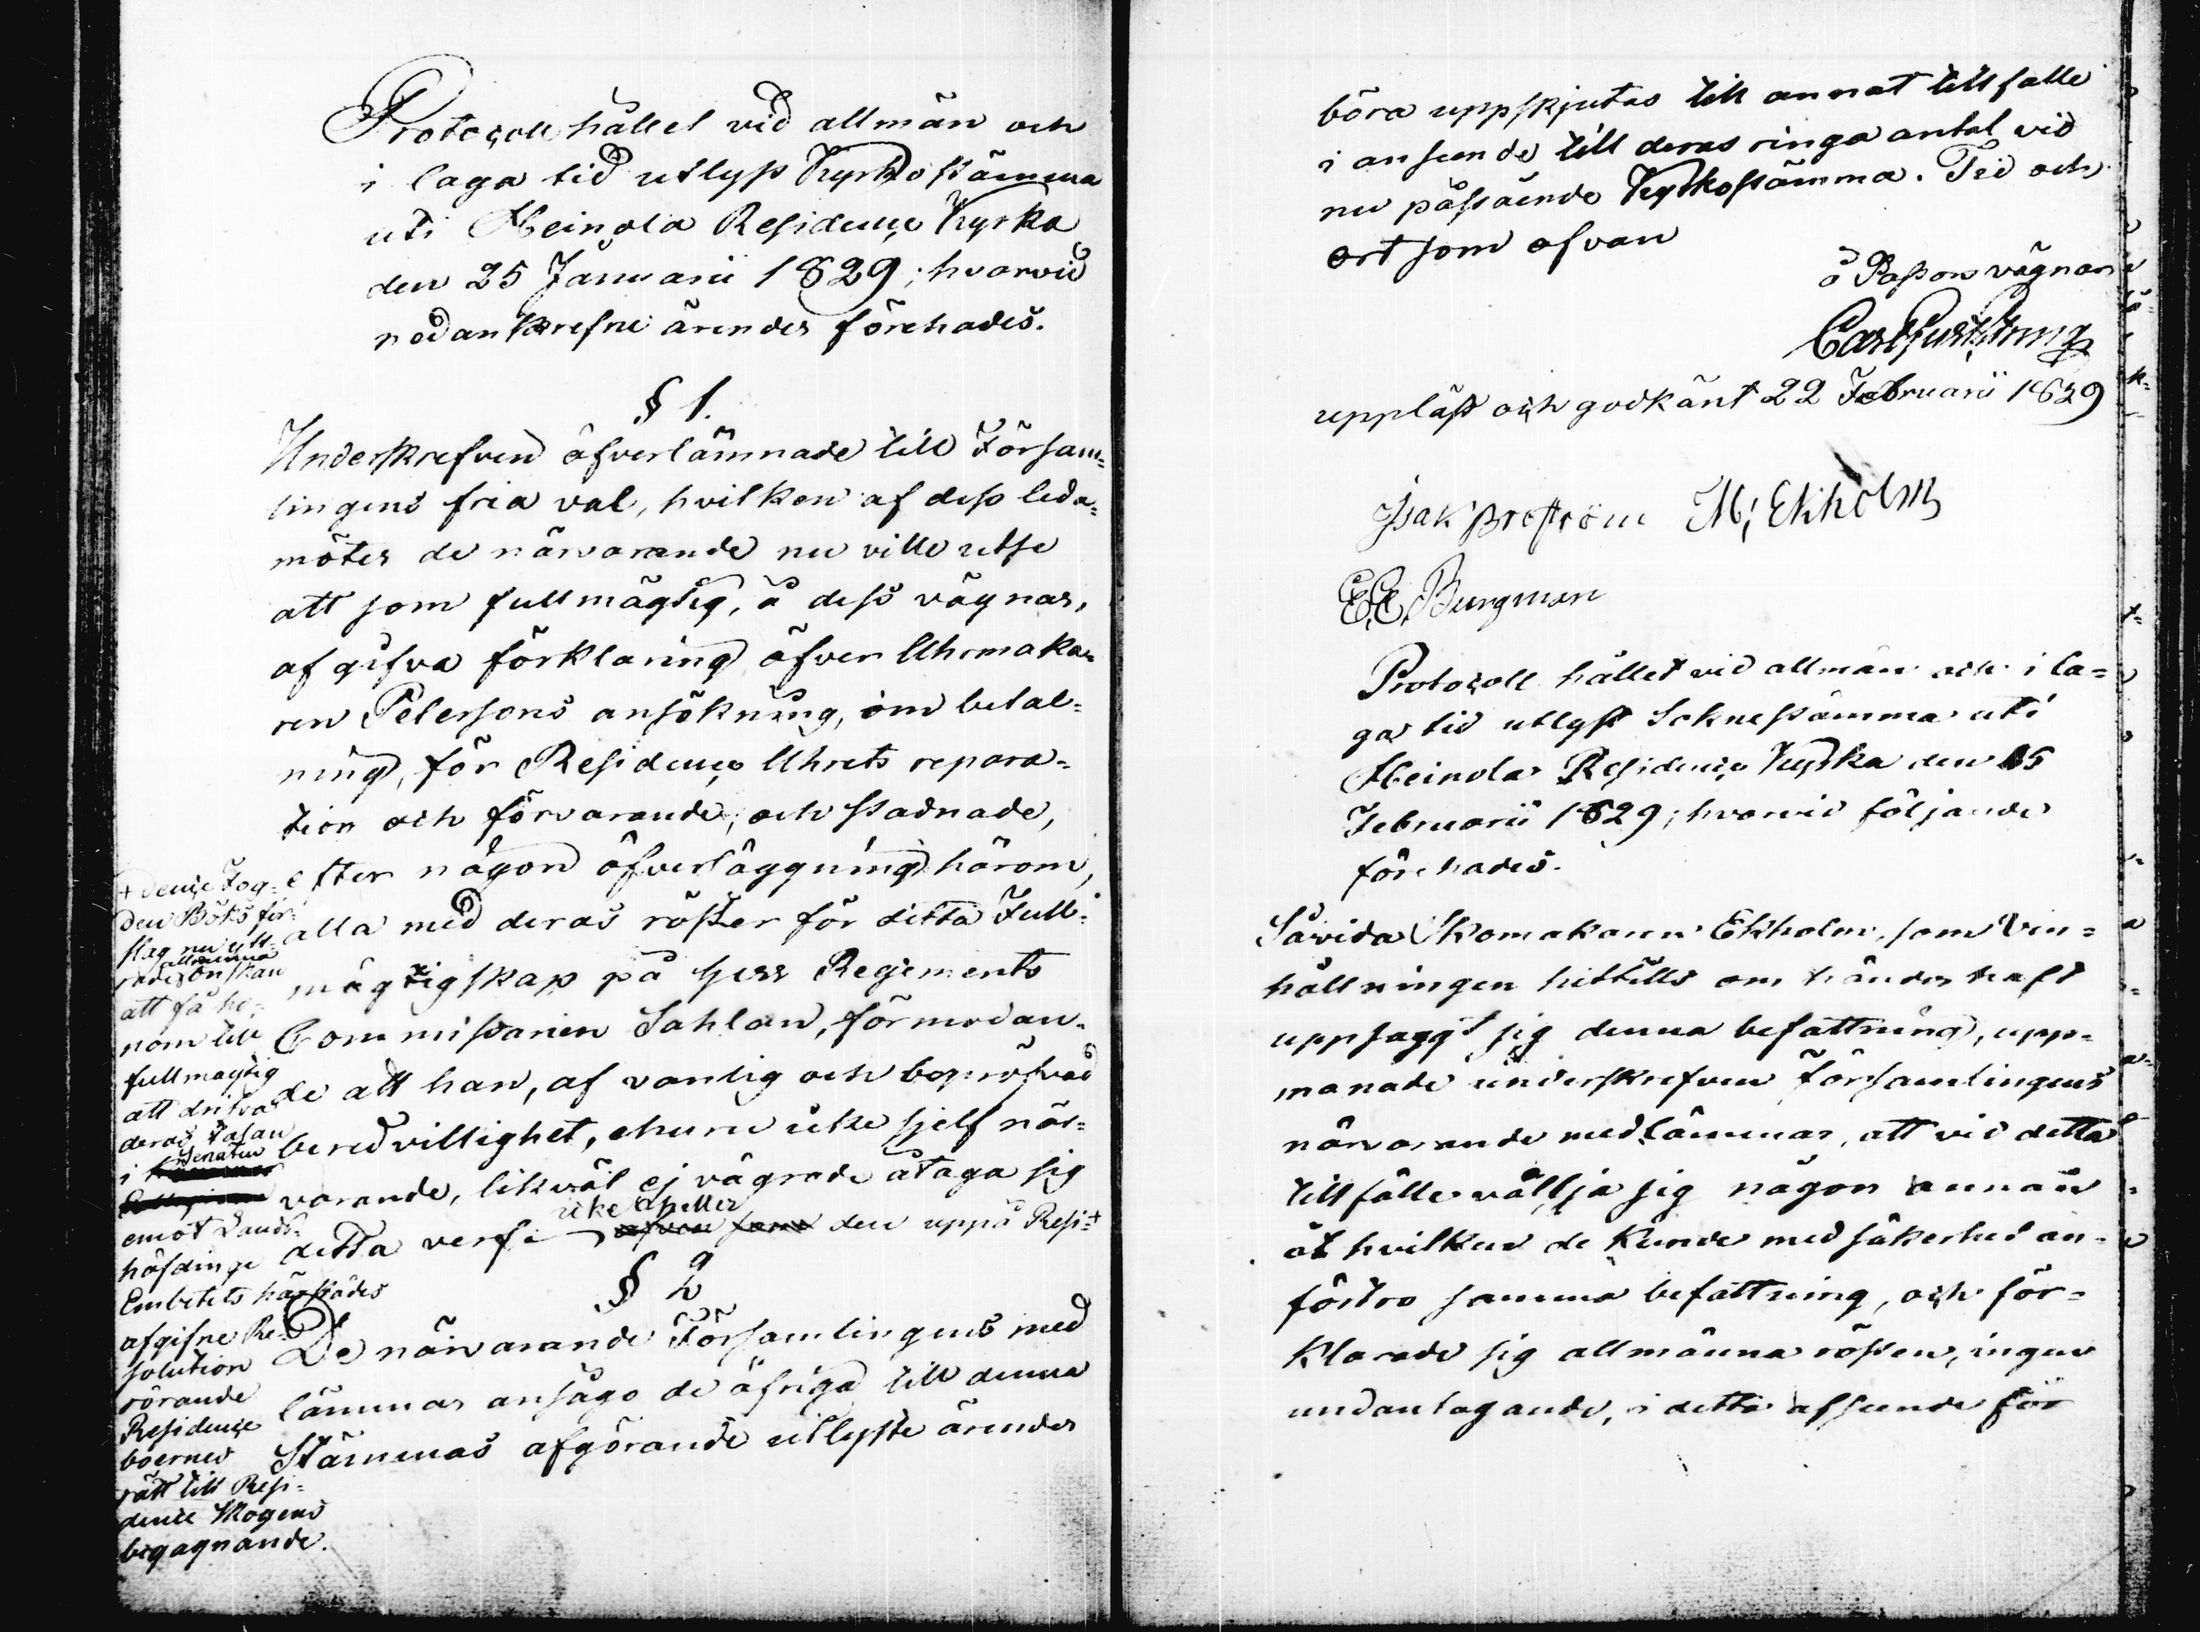 Protocoll hållet vid allmän och
i laga tid utlyst Kyrkostämma
uti Heinola Residence Kyrka
den 25 Januarii 1829; hvarvid
nedanskrefne ärender förehades.
§ 1.
Underskrefven öfverlämnade till Församm=
lingens fria val, hvilken af dess leda=
möter de närvarande nu ville utse
att som fullmägtig, å dess vägnar,
afgifva förklaring öfver Uhrmaka=
ren Petersons ansökning, om betal=
ning, för Residence Uhrets repara=
tion och förvarande; och stadnade,
efter någon öfverläggning härom,
alla med deras röster för detta Full=
mägtigskap på Herr Regements
Commissarien Sahlan, förmodan=
de att han, af vanlig och bepröfvad
beredvillighet, ehuru icke sjelf när=
varande, likväl ej vägrade åtaga sig
icke eheller
detta verf i den uppå Resi=+
+ dence Fog=
den Böks för=
slag nu utt=
allmänna
rade önskan
att få ho=
nom till
fullmägtig
att drifva
deras talan
Senaten
i
emot Lands=
höfdinge
Embetets härstädes
afgifne Re=
solution
rörande
Residence
boernes
rätt till Resi=
dence Skogens
begagnande.
§ 2
De närvarande Församlingens med
lämmar ansågo de öfriga till denna
Stämmas afgörande utlyste ärender
böra uppskjutas till annat tillfälle
i anseende till deras ringa antal vid
nu påstående Kyrkostämma. Tid och
ort som ofvan
å Paston vägnar
Carl Gust
uppläst och godkänt 22 Februarii 1829
Isak Broström M; Ekholm
E.E. Bergman
Protocoll hållet vid allmän och i la=
ga tid utlyst Socknestämma uti
Heinola Residence Kyrka den 15
Februarii 1829; hvarvid följande
förehades.
Såvida Skomakaren Ekholm, som Vin=
hållningen hittills om händer haft
uppsaggt sig denna befattning, upp=
manade underskrefven församlingens
närvarande medlämmar, att vid detta
tillfälle vällja sig någon annan
åt hvilken de kunde med säkerhet an=
förtro samma befattning, och för=
klarade sig allmänna rösten, ingen
undantagande, i detta afseende för